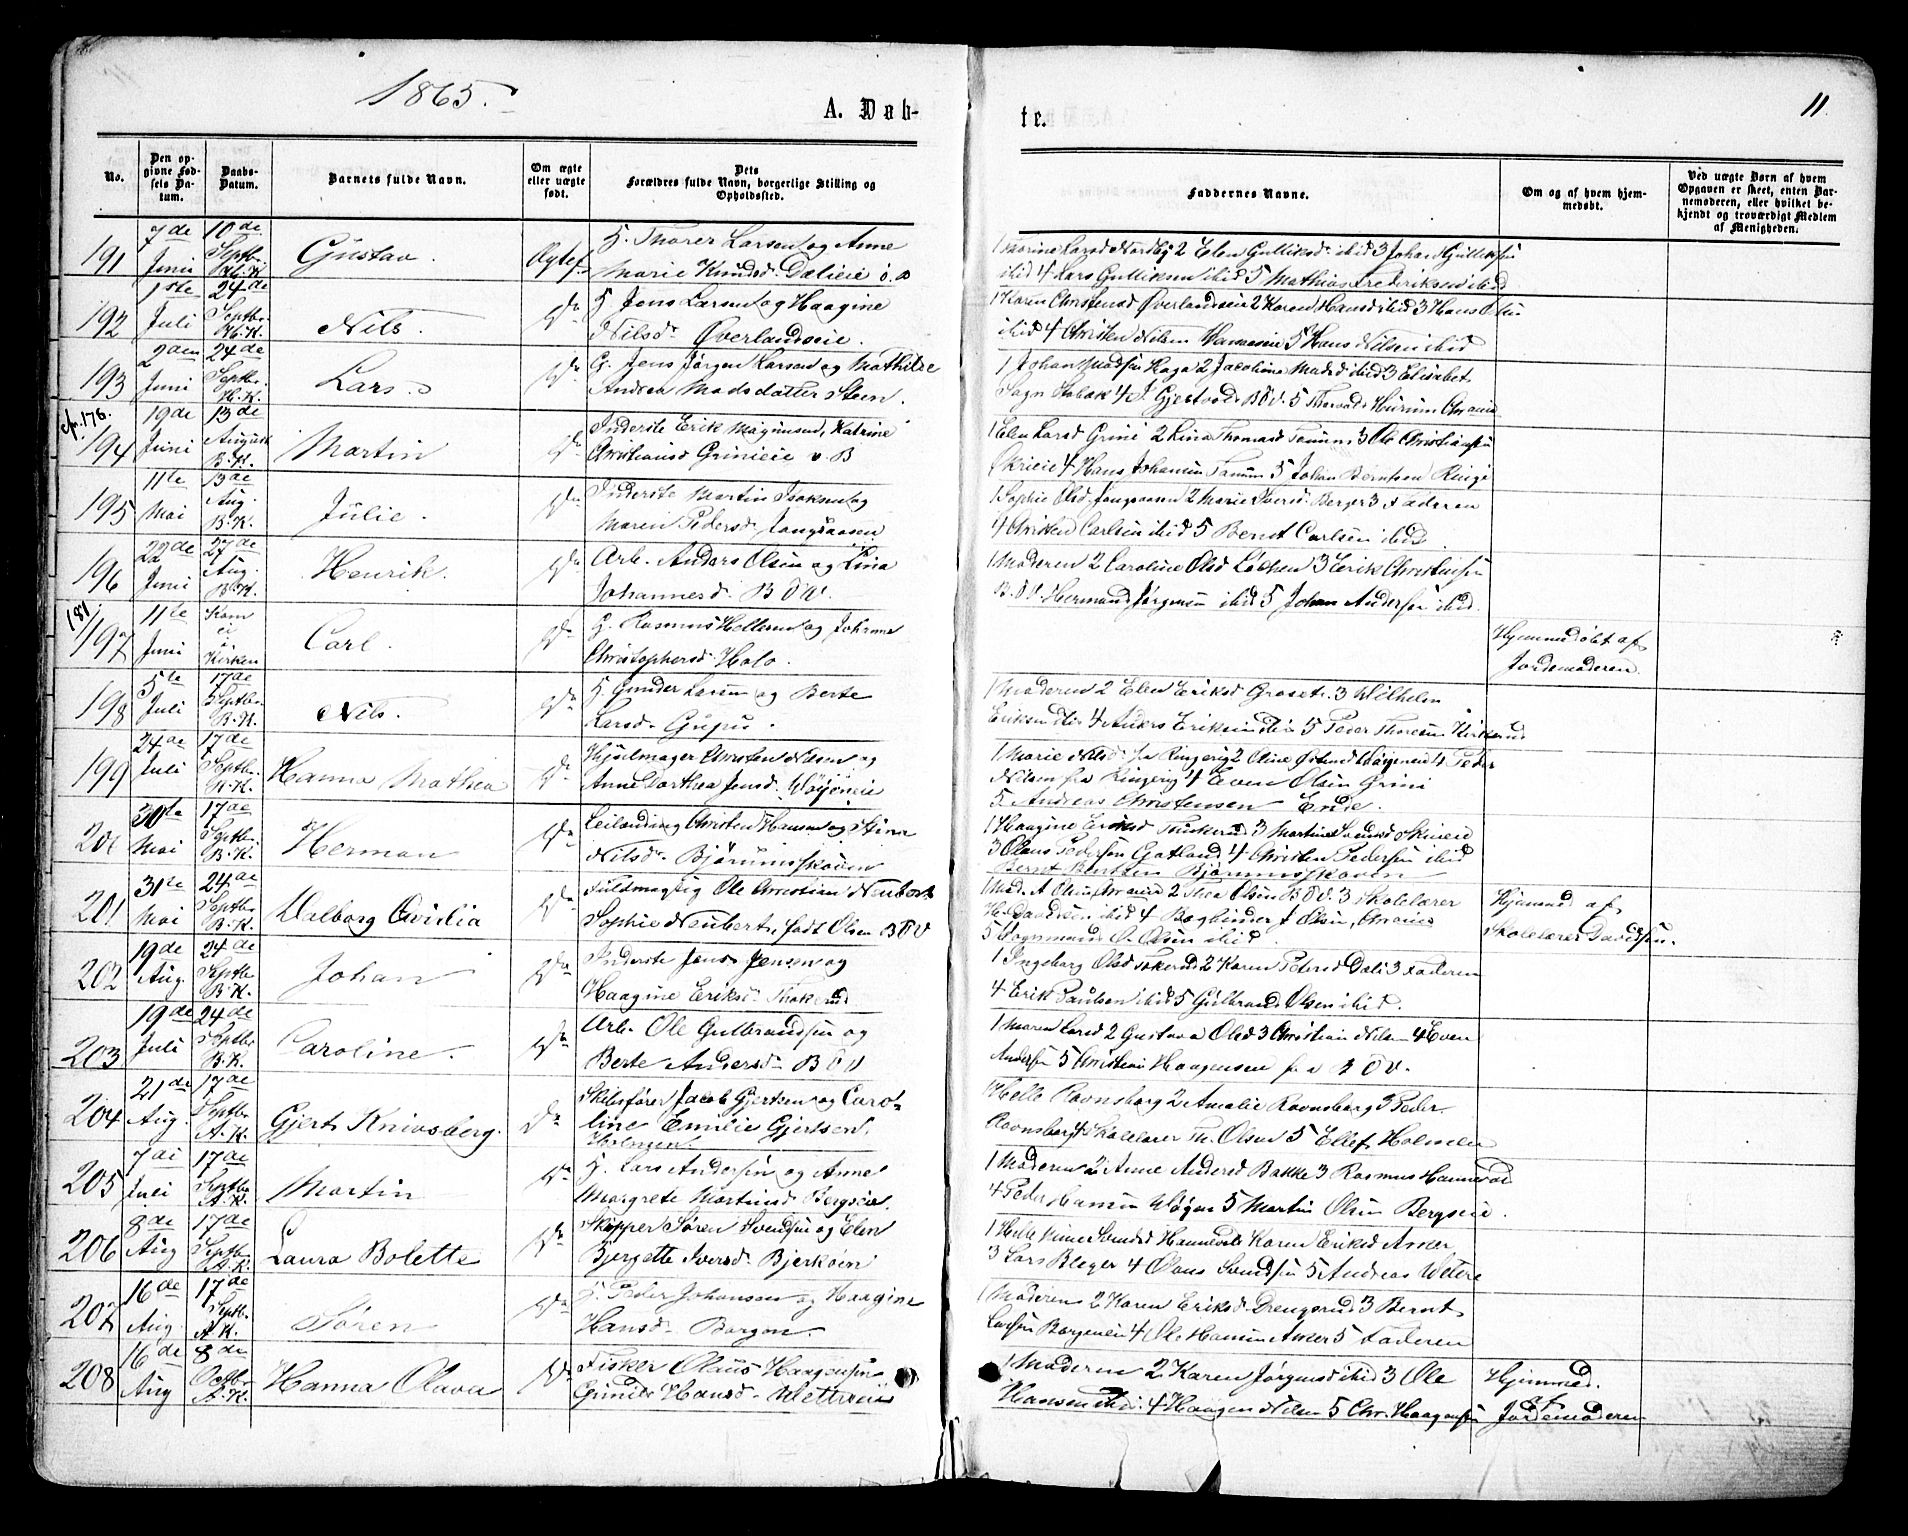 1865.
A. Døb-
te.
11.
No.
Den op-
givne Fød-
sels Da-
tum.
Daabs-
Datum.
Barnets fulde Navn.
Om ægte
eller uægte
født.
Dets
Forældres fulde Navn, borgerlige Stilling og
Opholdssted.
Faddernes Navne.
Om og af hvem hjem-
medøbt.
Ved uægte Børn af hvem
Opgaven er skeet, enten Bar-
nemoderen, eller hvilket be-
kjendt og troværdigt Medlem
af Menigheden.
191
7de
Juni
10de
Septbr
Gustav.
G. Thorer Larsen og Anne
Marie Knudsd.
192
1ste
Juli
24de
Septbr
H. K.
Nils.
Do
G. Jens Larsen og Haagine
Nilsd. Øverlandseie.
1 Karen Christensd Øverlandseie 2 Karen Hansd ibid 3 Hans
ibid 4 Christen Nilsen 5 Hans Nilsen ibid
193
2den
Juni
24de
Septbr
H. K.
Lars.
Do
G. Jens Jørgen Larsen og Mathilde
Andrea Madsdatter Steen.
1 Johan Madsen Haga 2 Jacobine Madsd ibid 3 Elisabet
cfr. 176.
194
19de
Juni
13de
August
B. K.
Martin
Do
Inderste Erik Magnusen, Katrine
Christiansd Grinieie v. B
1 Elen Larsd Grini 2 Lina Thomasd Tanum 3 Ole Christiansen
4 Hans Johansen Tanum 5 Johan Berntsen Ringi
195
11te
Mai
13de
Aug.
B. K.
Julie.
Do
Inderste Martin Isaksen og
Maren Pedersd.
1 Sophie Olsd 2 Marie Iversd. Berger 3 Faderen
4 Christen Carlsen ibid 5 Bernt Carlsen ibid.
196
22de
Juni
27de
Aug.
B. K.
Henrik.
Do
Arb. Anders Olsen og Lina
Johannesd. B Ø V.
1 Moderen 2 Caroline Olsd Løkken 3 Erik Christensen
B. Ø V Herman Jørgensen ibid 5 Johan Andersen ibid.
181/
197
11te
Juni
Kom
ei
i
Kirken
Carl.
Do
G. Rasmus Hellesen og Johanne
Christophersd Holo.
Hjemmedøbt af
Jordemoderen.
198
5te
Juli
17de
Septbr
B. K.
Nils.
Do
G. Gunder Larsen og Berte
Larsd.
1 Moderen 2 Elen Eriksd Groset. 3 Wilhelm
Eriksen 4 Anders Eriksen 5 Peder Thoresen Kirkerud
199
24de
Juli
17de
Septbr
B. K.
Hanna Mathea
Do
Hjulmager Christen Nilsen og
Anne Dorthea Jensd. Wøyeneie
1 Marie Nilsd. fra Ringerig 2 Oline
Nilsen fra Ringerig 4 Even Olsen Grini
5 Andreas Christensen
30te
Mai
17de
Septbr
B. K.
Herman
Do
Leilænding Christen Hansen og
Nilsd. Bjørumsskoven
1 Haagine Eriksd
3 Olaus Pedersen Gotland 4 Christen Pedersen ibid
Bernt Berntsen Bjørumsskoven
201
31te
Mai
24de
Septbr
B. K.
Valborg Ovidia
Do
Fuldmægtig Ole Christian Neubert
Sophie Neubert, født Olsen B Ø V
1 Mad. A Olsen 2 Thea Olsen B Ø V. 3 Skolelærer
H. Davidsen ibid 4 Bogbinder J Olsen,
5 Sognmand O. Olsen ibid.
Hjemmed af
Skolelærer Davidsen.
202
19de
Aug.
24de
Septbr
B. K.
Johan
Do
Inderste Jens Jensen og
Haagine Eriksd.
1 Ingeborg Olsd 2 Karen Pedersd Dali 3 Faderen
4 Erik Paulsen ibid 5 Gulbrand Olsen ibid.
203
19de
Juli
24de
Septbr
B. K.
Caroline.
Do
Arb. Ole Gulbrandsen og
Berte Andersd. B Ø V
1 Maren Larsd 2 Gustava Olsd 3 Christian Nilsen 4 Even
Andersen 5 Christian Haagensen fra B Ø V.
204
21de
Aug.
17de
Septbr
A. K.
Gjert Knivsberg.
Do
Skibsfører Jacob Gjertsen og Caro-
line Emilie Gjertsen,
Holmen
1 Helle Ravnsborg 2 Amalie Ravnsborg 3 Peder
Ravnsborg 4 Skolelærer Th. Olsen 5 Ellef Holmen
205
7de
Juli
17de
Septbr
A. K.
Martin
Do
G. Lars Andersen og Anne
Margrete Martinsd. Bergseie.
1 Moderen 2 Anne Andersd Bakke 3 Rasmus
4 Peder Hansen 5 Martin Olsen Bergseie.
206
8de
Aug
17de
Septbr
A. K.
Laura Bolette
Do
Skipper Søren Svendsen og Elen
Birgette Iversd. Bjerkøen
Karen Eriksd Asker
3 Lars Bleger 4 Olaus Svendsen 5 Andreas Wetere
207
16de
Aug.
17de
Septbr
A. K.
Søren
Do
G. Peder Johansen og Haagine
Hansd. Borgen.
1 Moderen 2 Karen Eriksd. Drengsrud 3 Bernt
Larsen Borgeneie 4 Ole Hansen Asker 5 Faderen
208
16de
Aug
8de
Octbr
A. K.
Hanna Olava
Do
Fisker Olaus Haagensen
Gunild Hansd.
1 Moderen 2 Karen Jørgensd ibid 3 Ole
Hansen ibid. 4 Haagen Nilsen 5 Chr. Haagensen
Hjemmed.
af
Jordemoderen